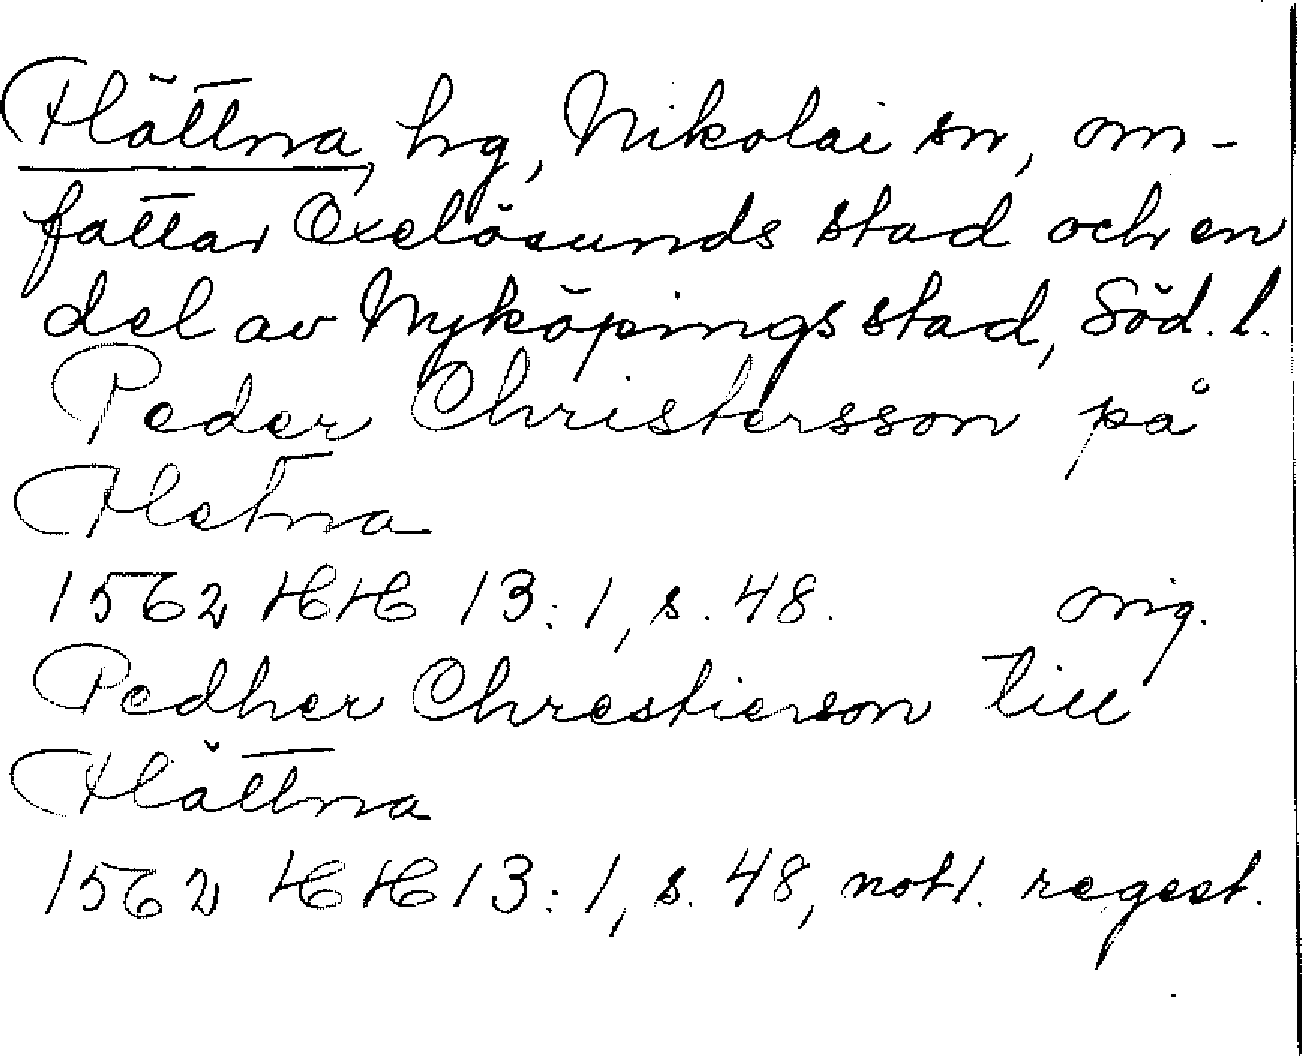 Flättna, hg, Nikolai sn, om-
fattar Oxelösunds stad och en
del av Nyköpings stad, Söd. l.
Peder Christersson på
Fletna
1562 HH 13:1, s. 48. orig.
Pedher Chrestierson till
Flättna
1562 HH 13:1, s. 48, not 1. regest.